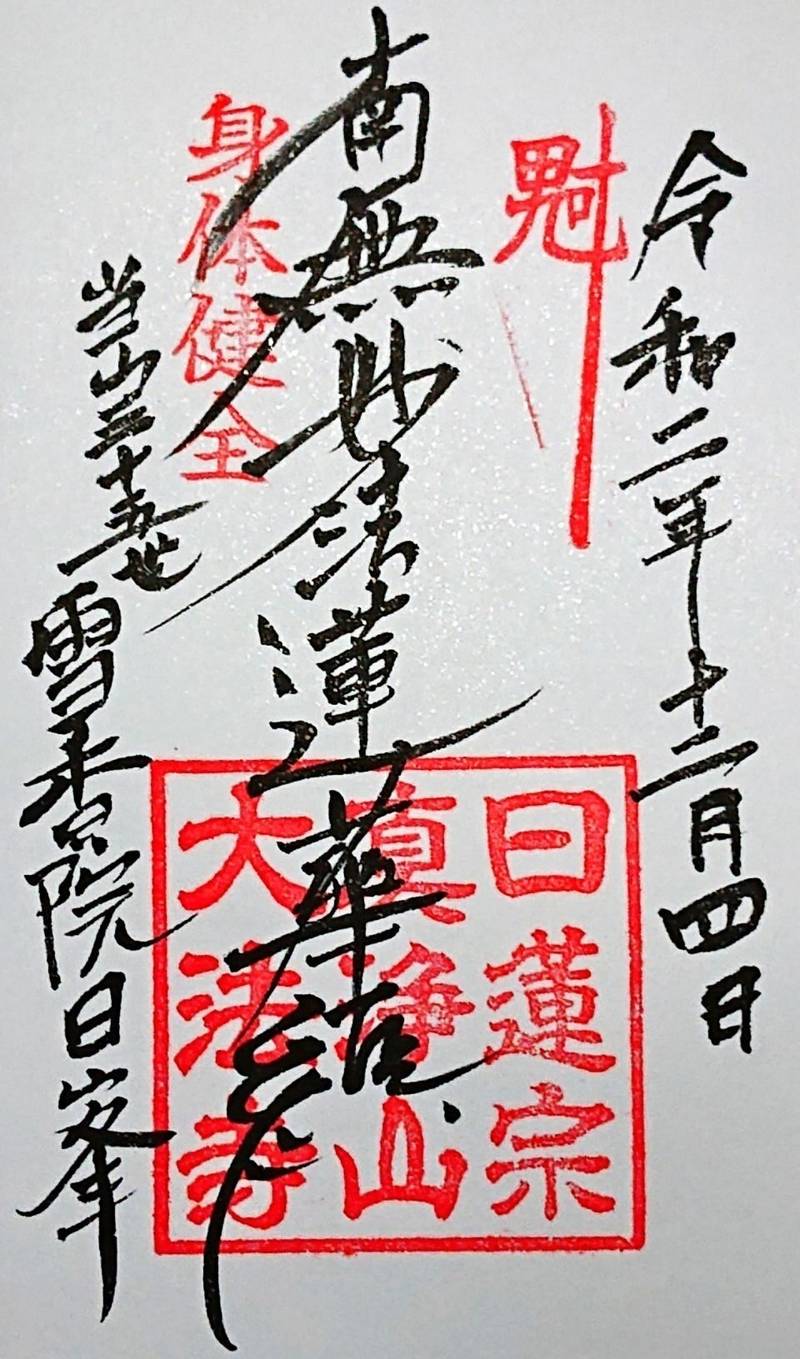 令和二年十二月四日
南無妙法蓮華経
身体健全
当山三十五世
雪香院日峯
日蓮宗
真浄山
大法寺